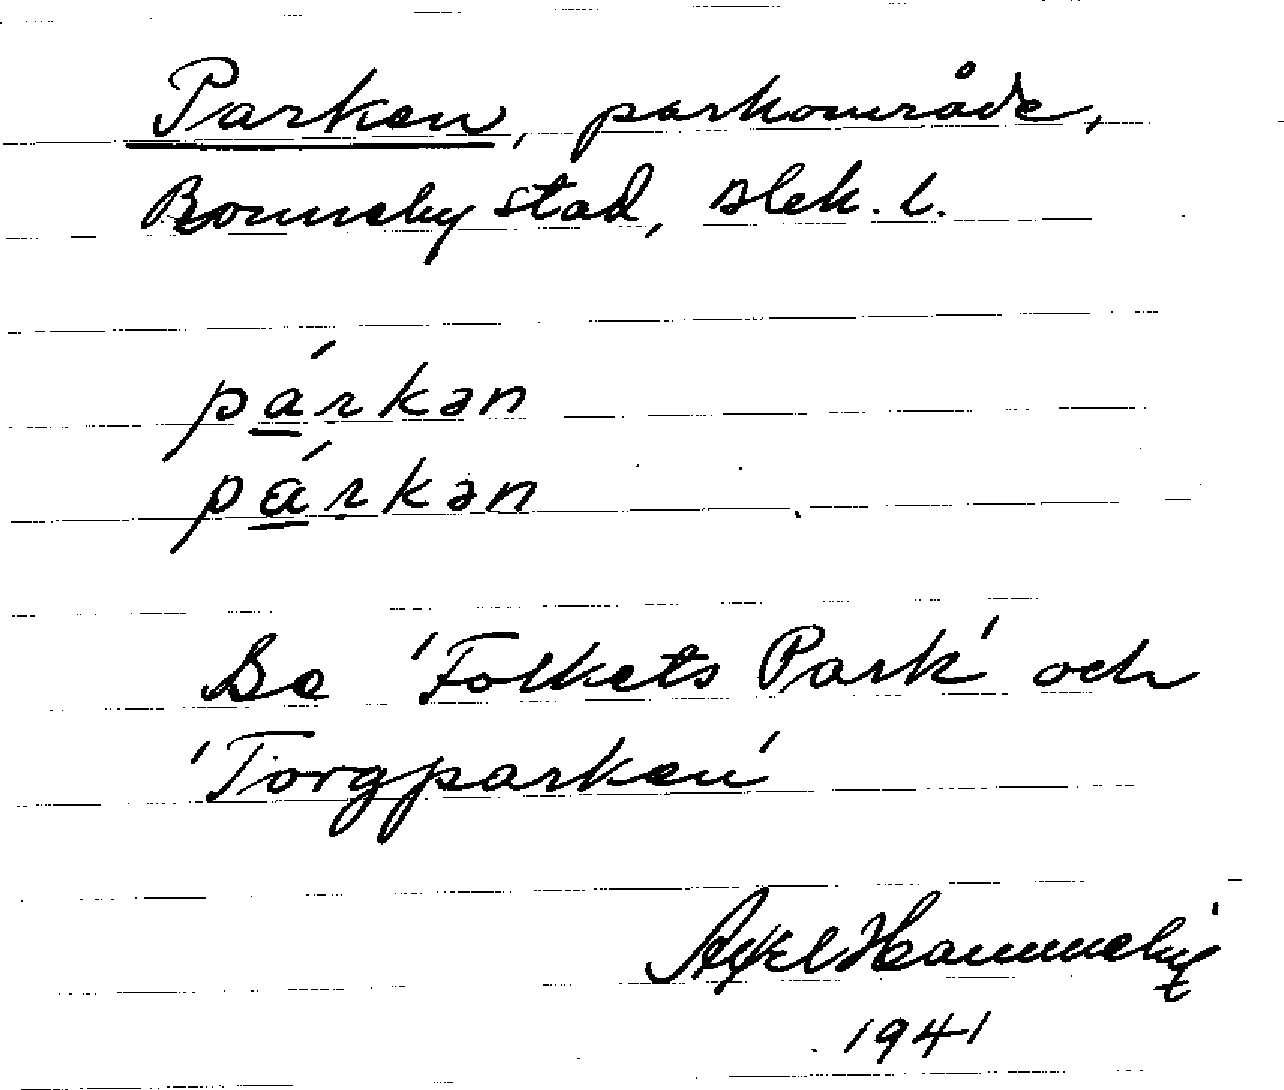 Parken, parkområde,
Ronneby stad, Blek. l.
párkən
párkən
Se 'Folkets Park' och
'Torgparken'
Axel Hamneby
1941